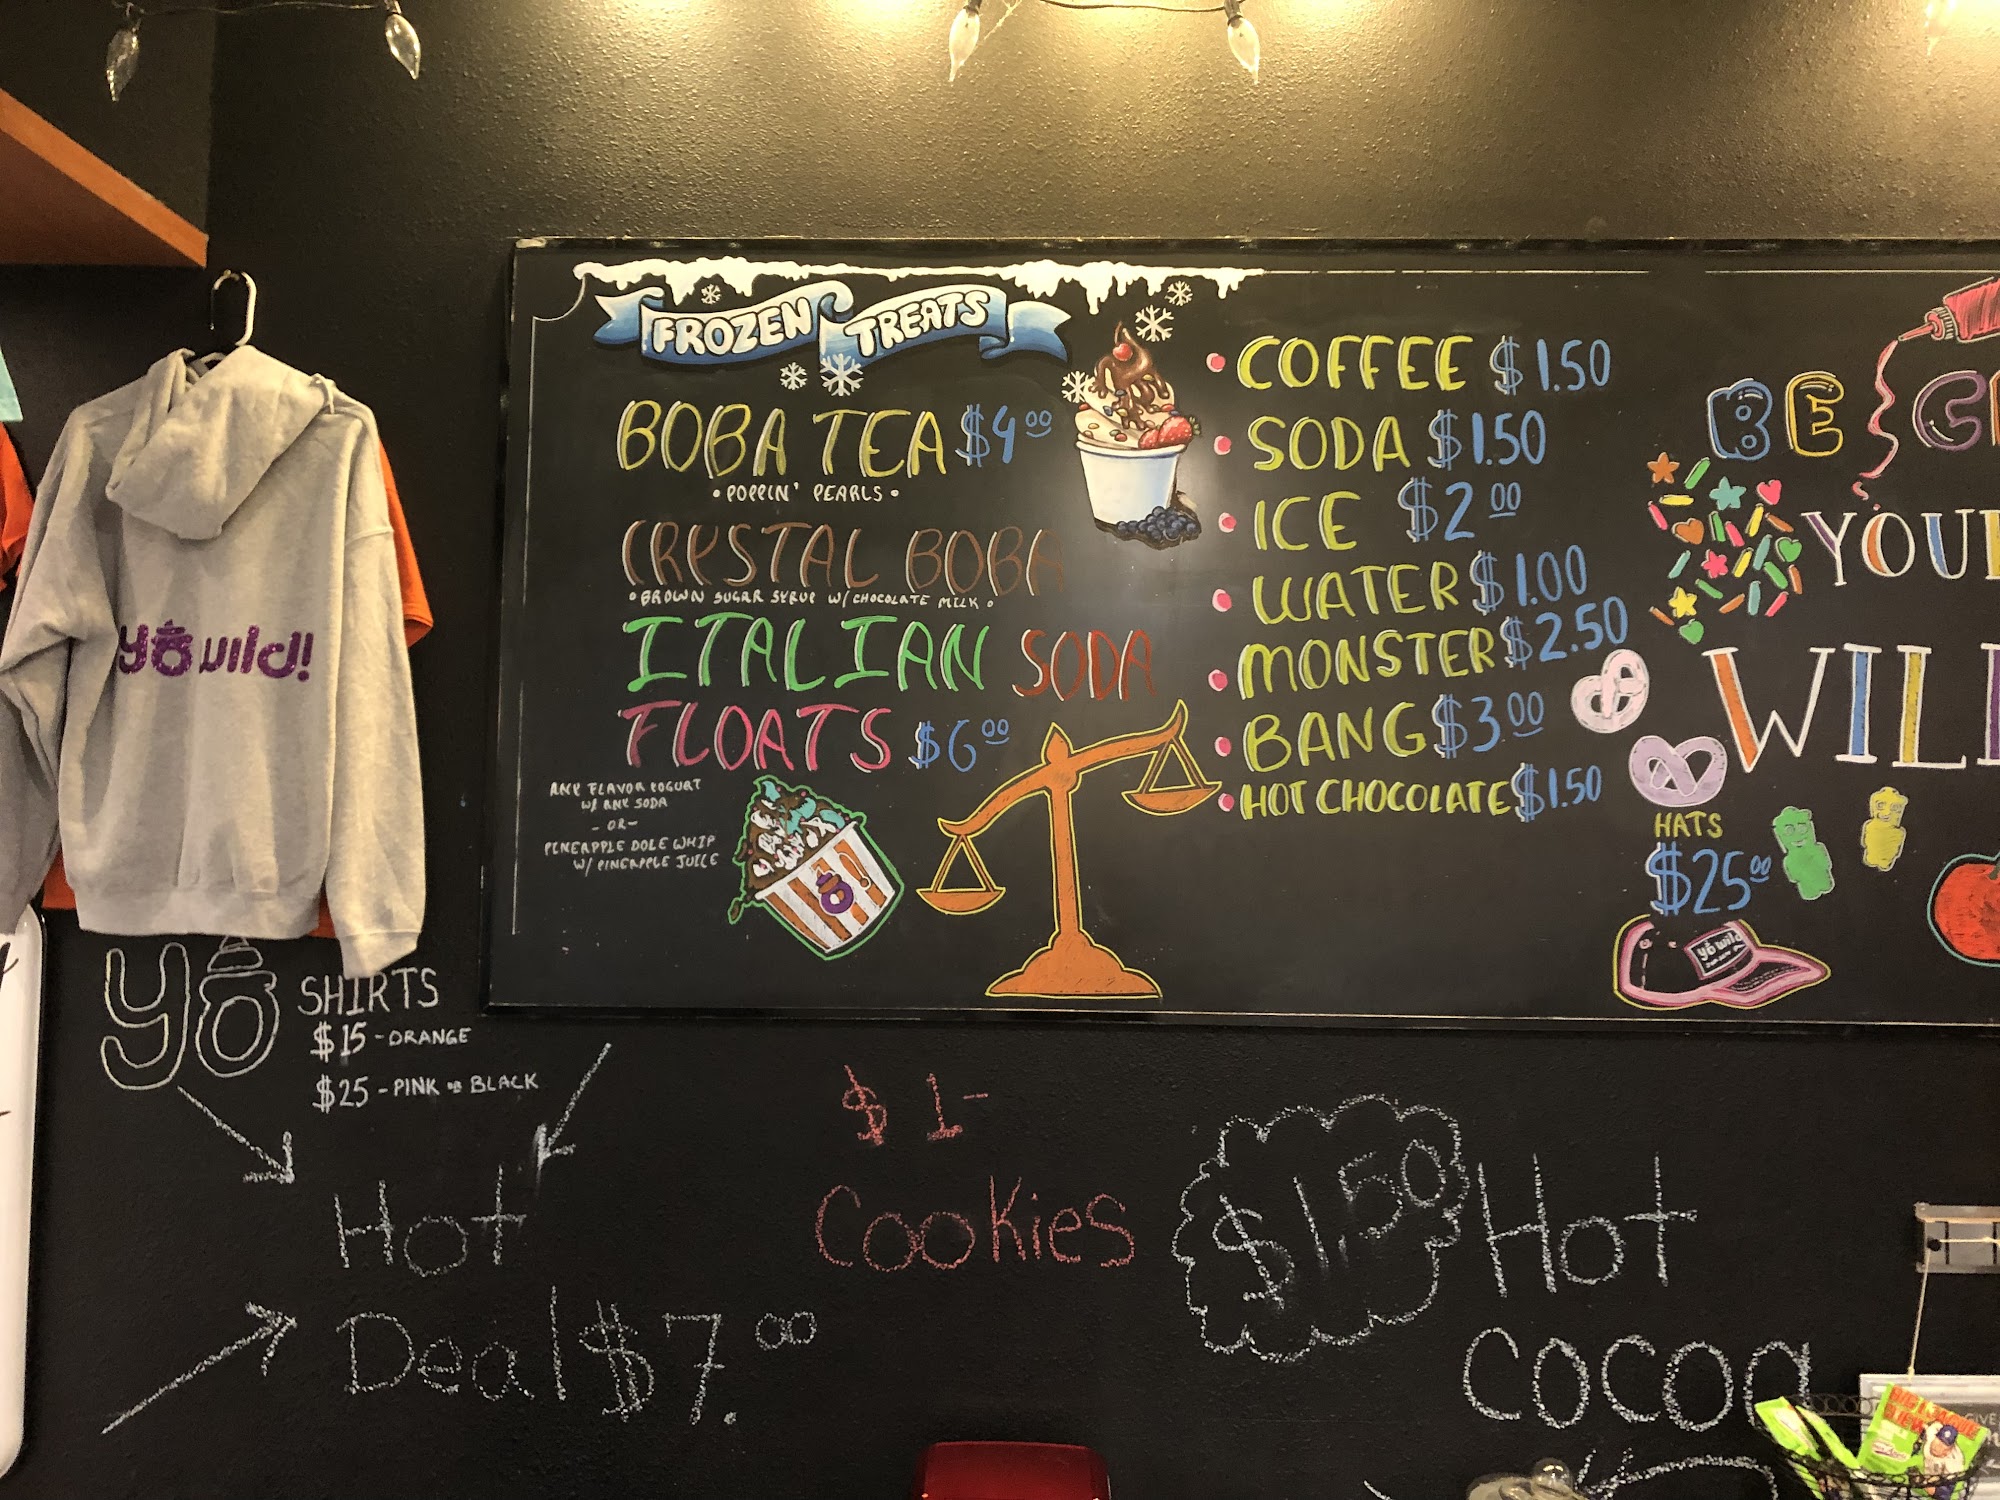 FROZEN TREATS
BOBA TEA $4.00
• POPPIN' PEARLS •
CRYSTAL BOBA
• BROWN SUGAR SYRUP W/ CHOCOLATE MILK •
ITALIAN SODA
FLOATS $6.00
ANY FLAVOR YOGURT
W/ ANY SODA
- OR -
PINEAPPLE DOLE WHIP
W/ PINEAPPLE JUICE
• COFFEE $1.50
• SODA $1.50
• ICE $2.00
• WATER $1.00
• MONSTER $2.50
• BANG $3.00
• HOT CHOCOLATE $1.50
BE
YOUR
WILD
HATS
$25.00
yo wild
yo wild!
yo SHIRTS
$15 - ORANGE
$25 - PINK OR BLACK
Hot
Deal $7.00
$1-
Cookies
$1.50 Hot
Cocoa
BIG LEAGUE
CHEW
GIVE